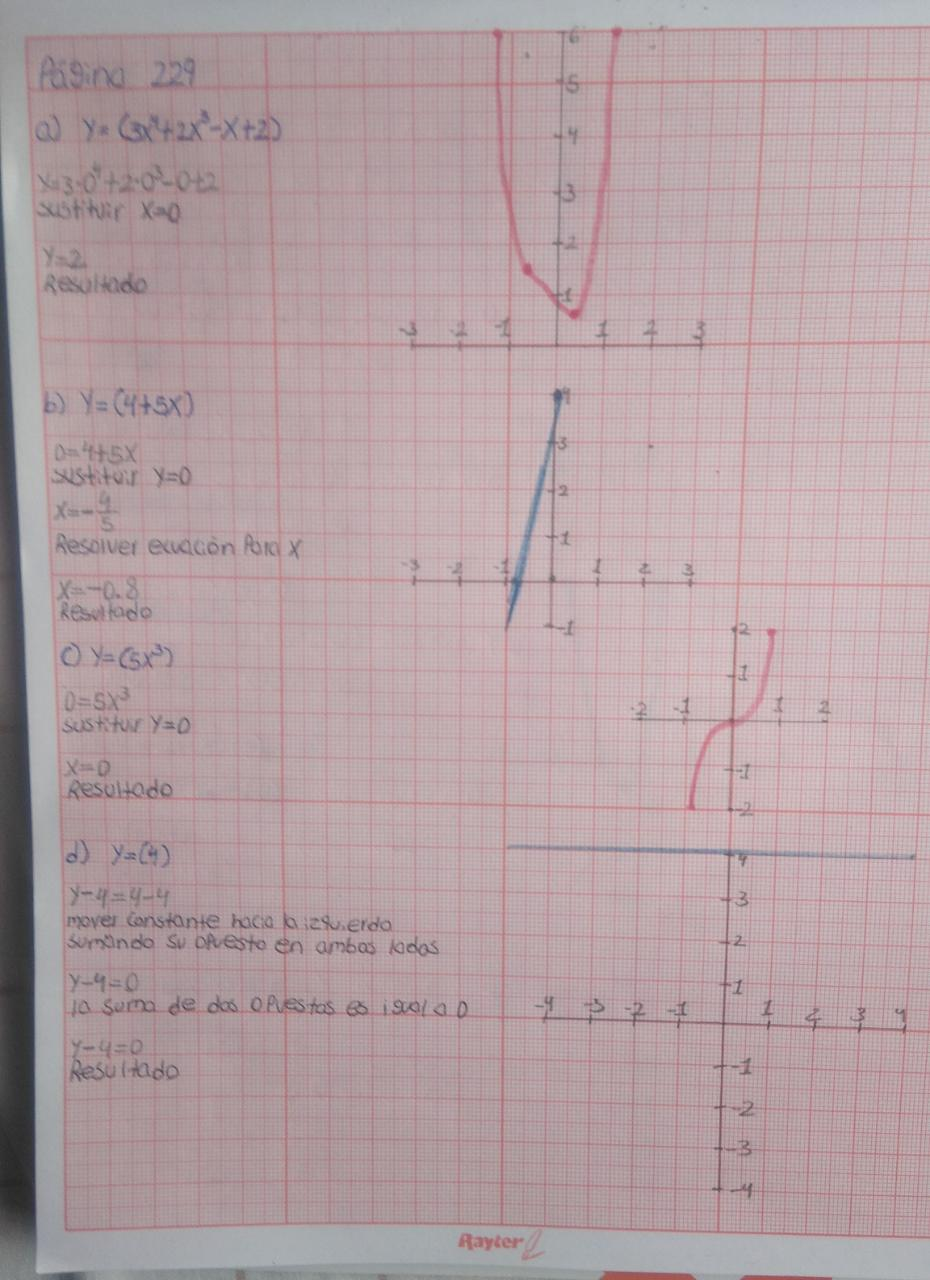 Página 229
a) y=(3x⁴+2x³-x+2)
x=3·0⁴+2·0³-0+2
sustituir x=0
y=2
Resultado
6
5
4
3
2
1
-3 -2 -1 1 2 3
b) y=(4+5x)
0=4+5x
sustituir y=0
x=-4/5
Resolver ecuación para x
x=-0.8
Resultado
4
3
2
1
-3 -2 -1 1 2 3
-1
c) y=(5x³)
0=5x³
sustituir y=0
x=0
Resultado
2
1
-2 -1 1 2
-1
-2
d) y=(4)
y-4=4-4
mover constante hacia la izquierda
sumando su opuesto en ambos lados
y-4=0
la suma de dos opuestos es igual a 0
y-4=0
Resultado
4
3
2
1
-4 -3 -2 -1 1 2 3 4
-1
-2
-3
-4
Rayter